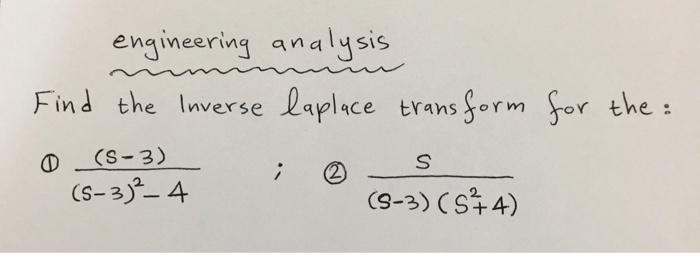 engineering analysis
Find the Inverse laplace transform for the :
① (S-3) / (S-3)² - 4 ; ② S / (S-3) (S²+4)